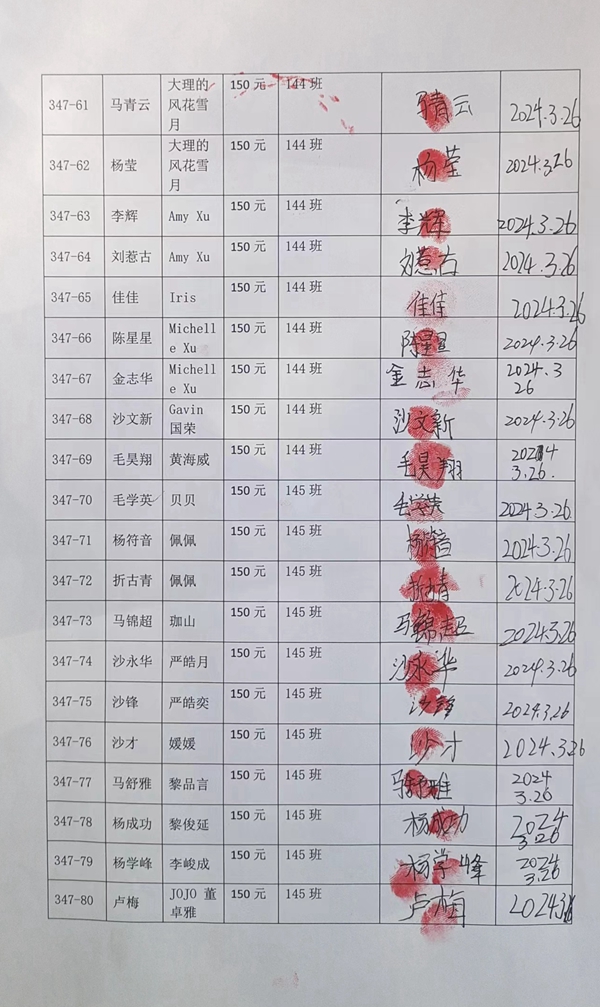 347-61 马青云 大理的风花雪月 150元 144班 马青云 2024.3.26
347-62 杨莹 大理的风花雪月 150元 144班 杨莹 2024.3.26
347-63 李辉 Amy Xu 150元 144班 李辉 2024.3.26
347-64 刘惹古 Amy Xu 150元 144班 刘惹古 2024.3.26
347-65 佳佳 Iris 150元 144班 佳佳 2024.3.26
347-66 陈星星 Michelle Xu 150元 144班 陈星星 2024.3.26
347-67 金志华 Michelle Xu 150元 144班 金志华 2024.3.26
347-68 沙文新 Gavin 国荣 150元 144班 沙文新 2024.3.26
347-69 毛昊翔 黄海威 150元 144班 毛昊翔 2024 3.26.
347-70 毛学英 贝贝 150元 145班 毛学英 2024.3.26
347-71 杨符音 佩佩 150元 145班 杨符音 2024.3.26
347-72 折古青 佩佩 150元 145班 折古青 2024.3.26
347-73 马锦超 珈山 150元 145班 马锦超 2024.3.26
347-74 沙永华 严皓月 150元 145班 沙永华 2024.3.26
347-75 沙锋 严皓奕 150元 145班 沙锋 2024.3.26
347-76 沙才 媛媛 150元 145班 沙才 2024.3.26
347-77 马舒雅 黎品言 150元 145班 马舒雅 2024 3.26
347-78 杨成功 黎俊延 150元 145班 杨成功 2024 3.26
347-79 杨学峰 李峻成 150元 145班 杨学峰 2024 3.26
347-80 卢梅 JOJO 董卓雅 150元 145班 卢梅 2024.3.26